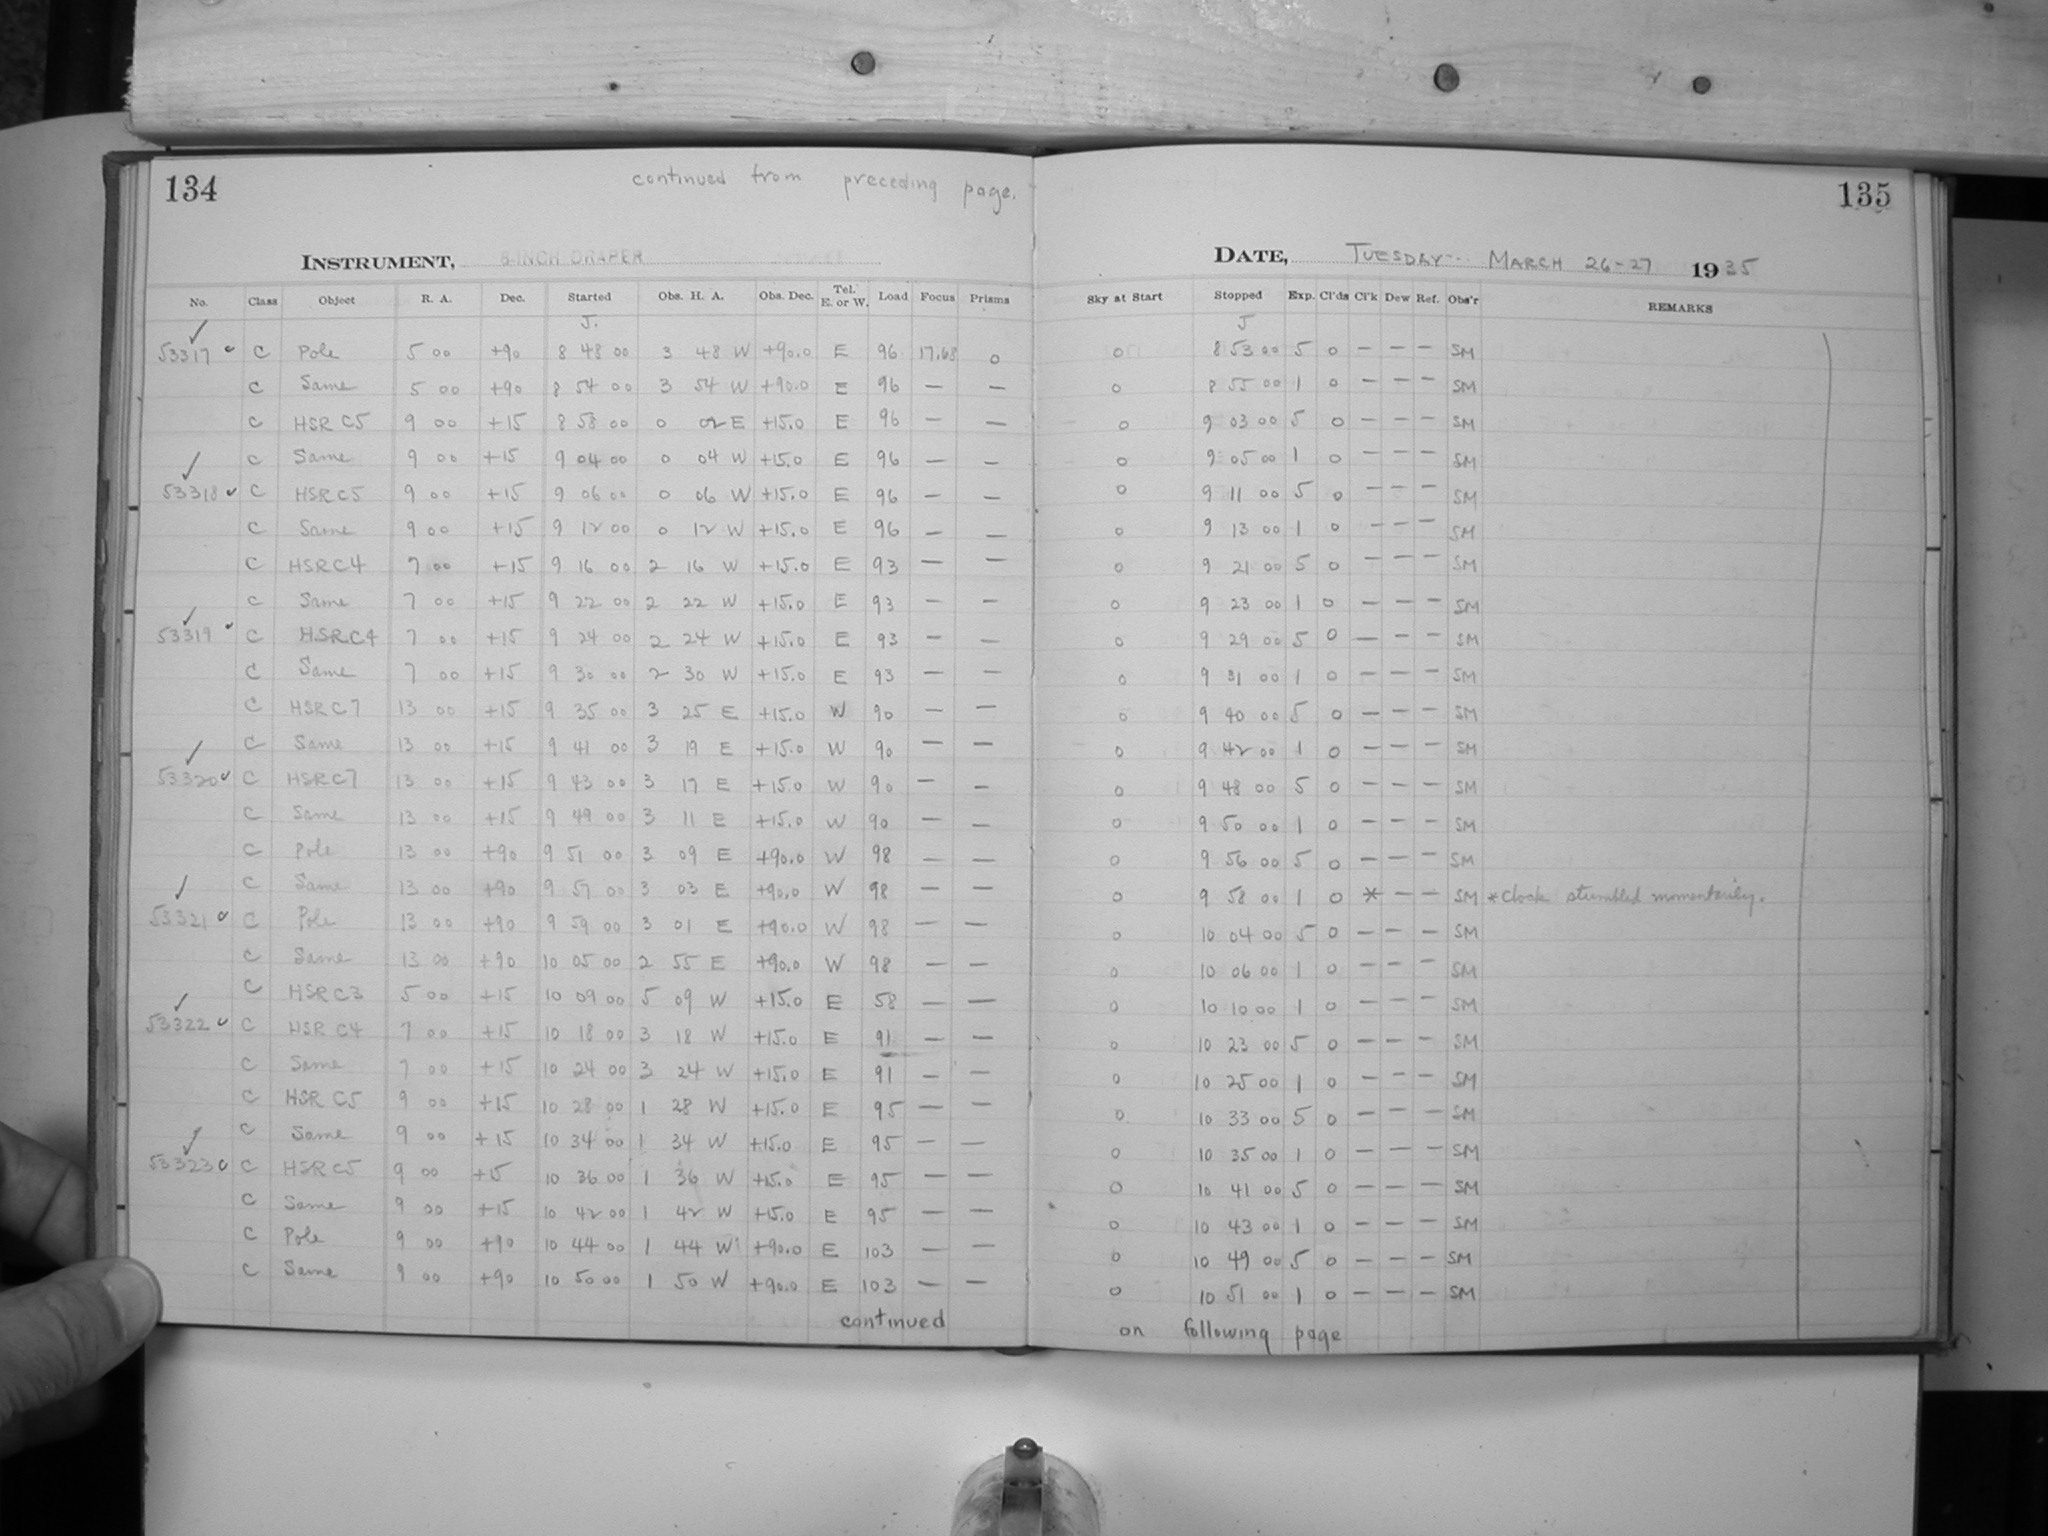 134
continued from preceding page.
135
INSTRUMENT, 8-INCH DRAPER
DATE, TUESDAY- MARCH 26-27 1935
No. Class Object R. A. Dec. Started Obs. H. A. Obs. Dec. Tel. E. or W. Load Focus Prisms Sky at Start Stopped Exp. Cl'ds Cl'k Dew Ref. Obs'r REMARKS
J. J
53317 ✓ C Pole 5 00 +90 8 48 00 3 48 W +90.0 E 96 17.68 0 0 8 53 00 5 0 — — — SM
C Same 5 00 +90 8 54 00 3 54 W +90.0 E 96 — — 0 8 55 00 1 0 — — — SM
C HSR C5 9 00 +15 8 58 00 0 02 E +15.0 E 96 — — 0 9 03 00 5 0 — — — SM
C Same 9 00 +15 9 04 00 0 04 W +15.0 E 96 — — 0 9 05 00 1 0 — — — SM
53318 ✓ C HSR C5 9 00 +15 9 06 00 0 06 W +15.0 E 96 — — 0 9 11 00 5 0 — — — SM
C Same 9 00 +15 9 12 00 0 12 W +15.0 E 96 — — 0 9 13 00 1 0 — — — SM
C HSR C4 7 00 +15 9 16 00 2 16 W +15.0 E 93 — — 0 9 21 00 5 0 — — — SM
C Same 7 00 +15 9 22 00 2 22 W +15.0 E 93 — — 0 9 23 00 1 0 — — — SM
53319 ✓ C HSR C4 7 00 +15 9 24 00 2 24 W +15.0 E 93 — — 0 9 29 00 5 0 — — — SM
C Same 7 00 +15 9 30 00 2 30 W +15.0 E 93 — — 0 9 31 00 1 0 — — — SM
C HSR C7 13 00 +15 9 35 00 3 25 E +15.0 W 90 — — 0 9 40 00 5 0 — — — SM
C Same 13 00 +15 9 41 00 3 19 E +15.0 W 90 — — 0 9 42 00 1 0 — — — SM
53320 ✓ C HSR C7 13 00 +15 9 43 00 3 17 E +15.0 W 90 — — 0 9 48 00 5 0 — — — SM
C Same 13 00 +15 9 49 00 3 11 E +15.0 W 90 — — 0 9 50 00 1 0 — — — SM
C Pole 13 00 +90 9 51 00 3 09 E +90.0 W 98 — — 0 9 56 00 5 0 — — — SM
C Same 13 00 +90 9 57 00 3 03 E +90.0 W 98 — — 0 9 58 00 1 0 * — — SM *Clock stumbled momentarily.
53321 ✓ C Pole 13 00 +90 9 59 00 3 01 E +90.0 W 98 — — 0 10 04 00 5 0 — — — SM
C Same 13 00 +90 10 05 00 2 55 E +90.0 W 98 — — 0 10 06 00 1 0 — — — SM
C HSR C3 5 00 +15 10 09 00 5 09 W +15.0 E 58 — — 0 10 10 00 1 0 — — — SM
53322 ✓ C HSR C4 7 00 +15 10 18 00 3 18 W +15.0 E 91 — — 0 10 23 00 5 0 — — — SM
C Same 7 00 +15 10 24 00 3 24 W +15.0 E 91 — — 0 10 25 00 1 0 — — — SM
C HSR C5 9 00 +15 10 28 00 1 28 W +15.0 E 95 — — 0 10 33 00 5 0 — — — SM
C Same 9 00 +15 10 34 00 1 34 W +15.0 E 95 — — 0 10 35 00 1 0 — — — SM
53323 ✓ C HSR C5 9 00 +15 10 36 00 1 36 W +15.0 E 95 — — 0 10 41 00 5 0 — — — SM
C Same 9 00 +15 10 42 00 1 42 W +15.0 E 95 — — 0 10 43 00 1 0 — — — SM
C Pole 9 00 +90 10 44 00 1 44 W +90.0 E 103 — — 0 10 49 00 5 0 — — — SM
C Same 9 00 +90 10 50 00 1 50 W +90.0 E 103 — — 0 10 51 00 1 0 — — — SM
continued on following page